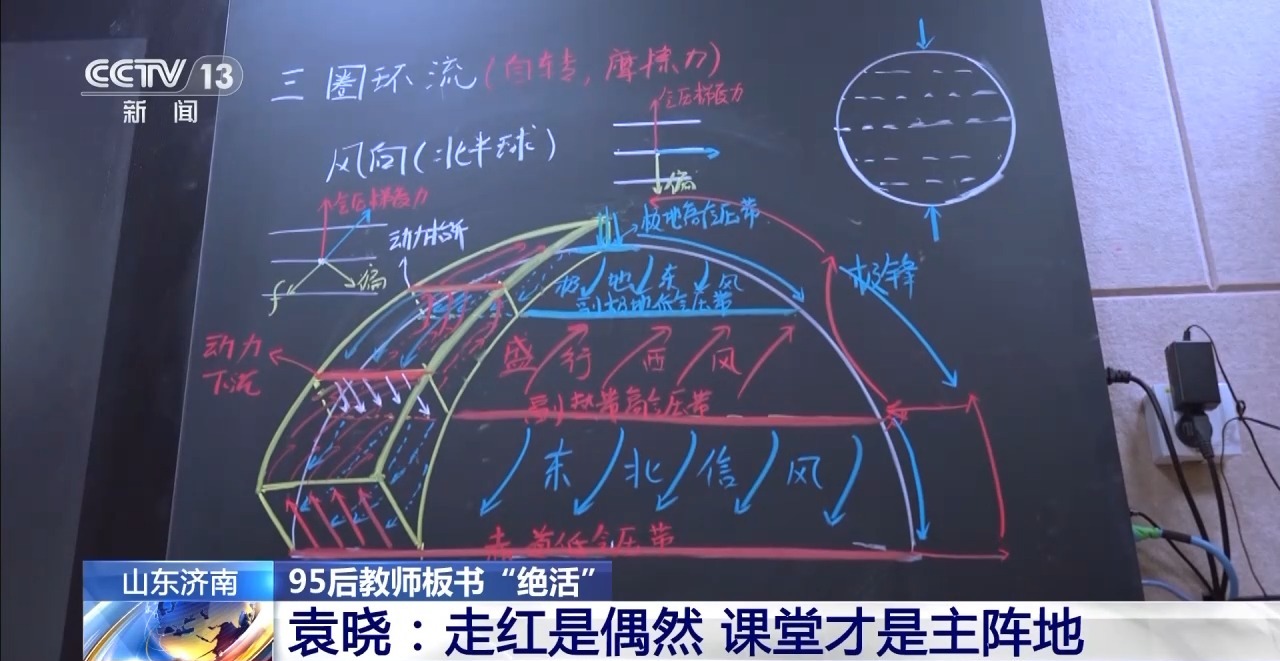 CCTV 13
新闻
三圈环流(自转,摩擦力)
风向(北半球)
气压梯度力
偏
气压梯度力
f
偏
动力抬升
极地高气压带
极地东风
副极地低气压带
极锋
动力
下沉
盛行西风
副热带高气压带
东北信风
赤道低气压带
山东济南
95后教师板书“绝活”
袁晓：走红是偶然 课堂才是主阵地